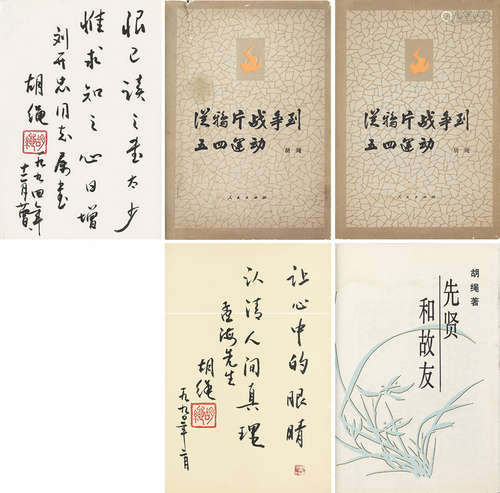 恨已读之书太少
惟求知之心日增
刘开忠同志属书
胡绳
一九九四年
十二月
从鸦片战争到
五四运动
胡绳
人民出版社
从鸦片战争到
五四运动
胡绳
人民出版社
让心中的眼睛
认清人间真理
香海先生
胡绳
一九九〇年二月
胡绳著
先贤
和故友